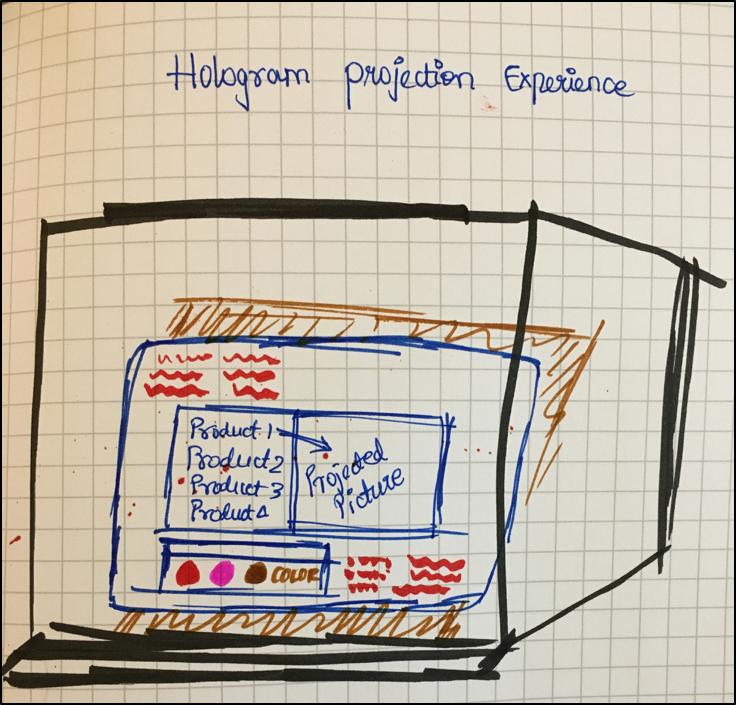 Hologram projection Experience
Product 1
Product 2
Product 3
Product 4
Projected
Picture
COLOR